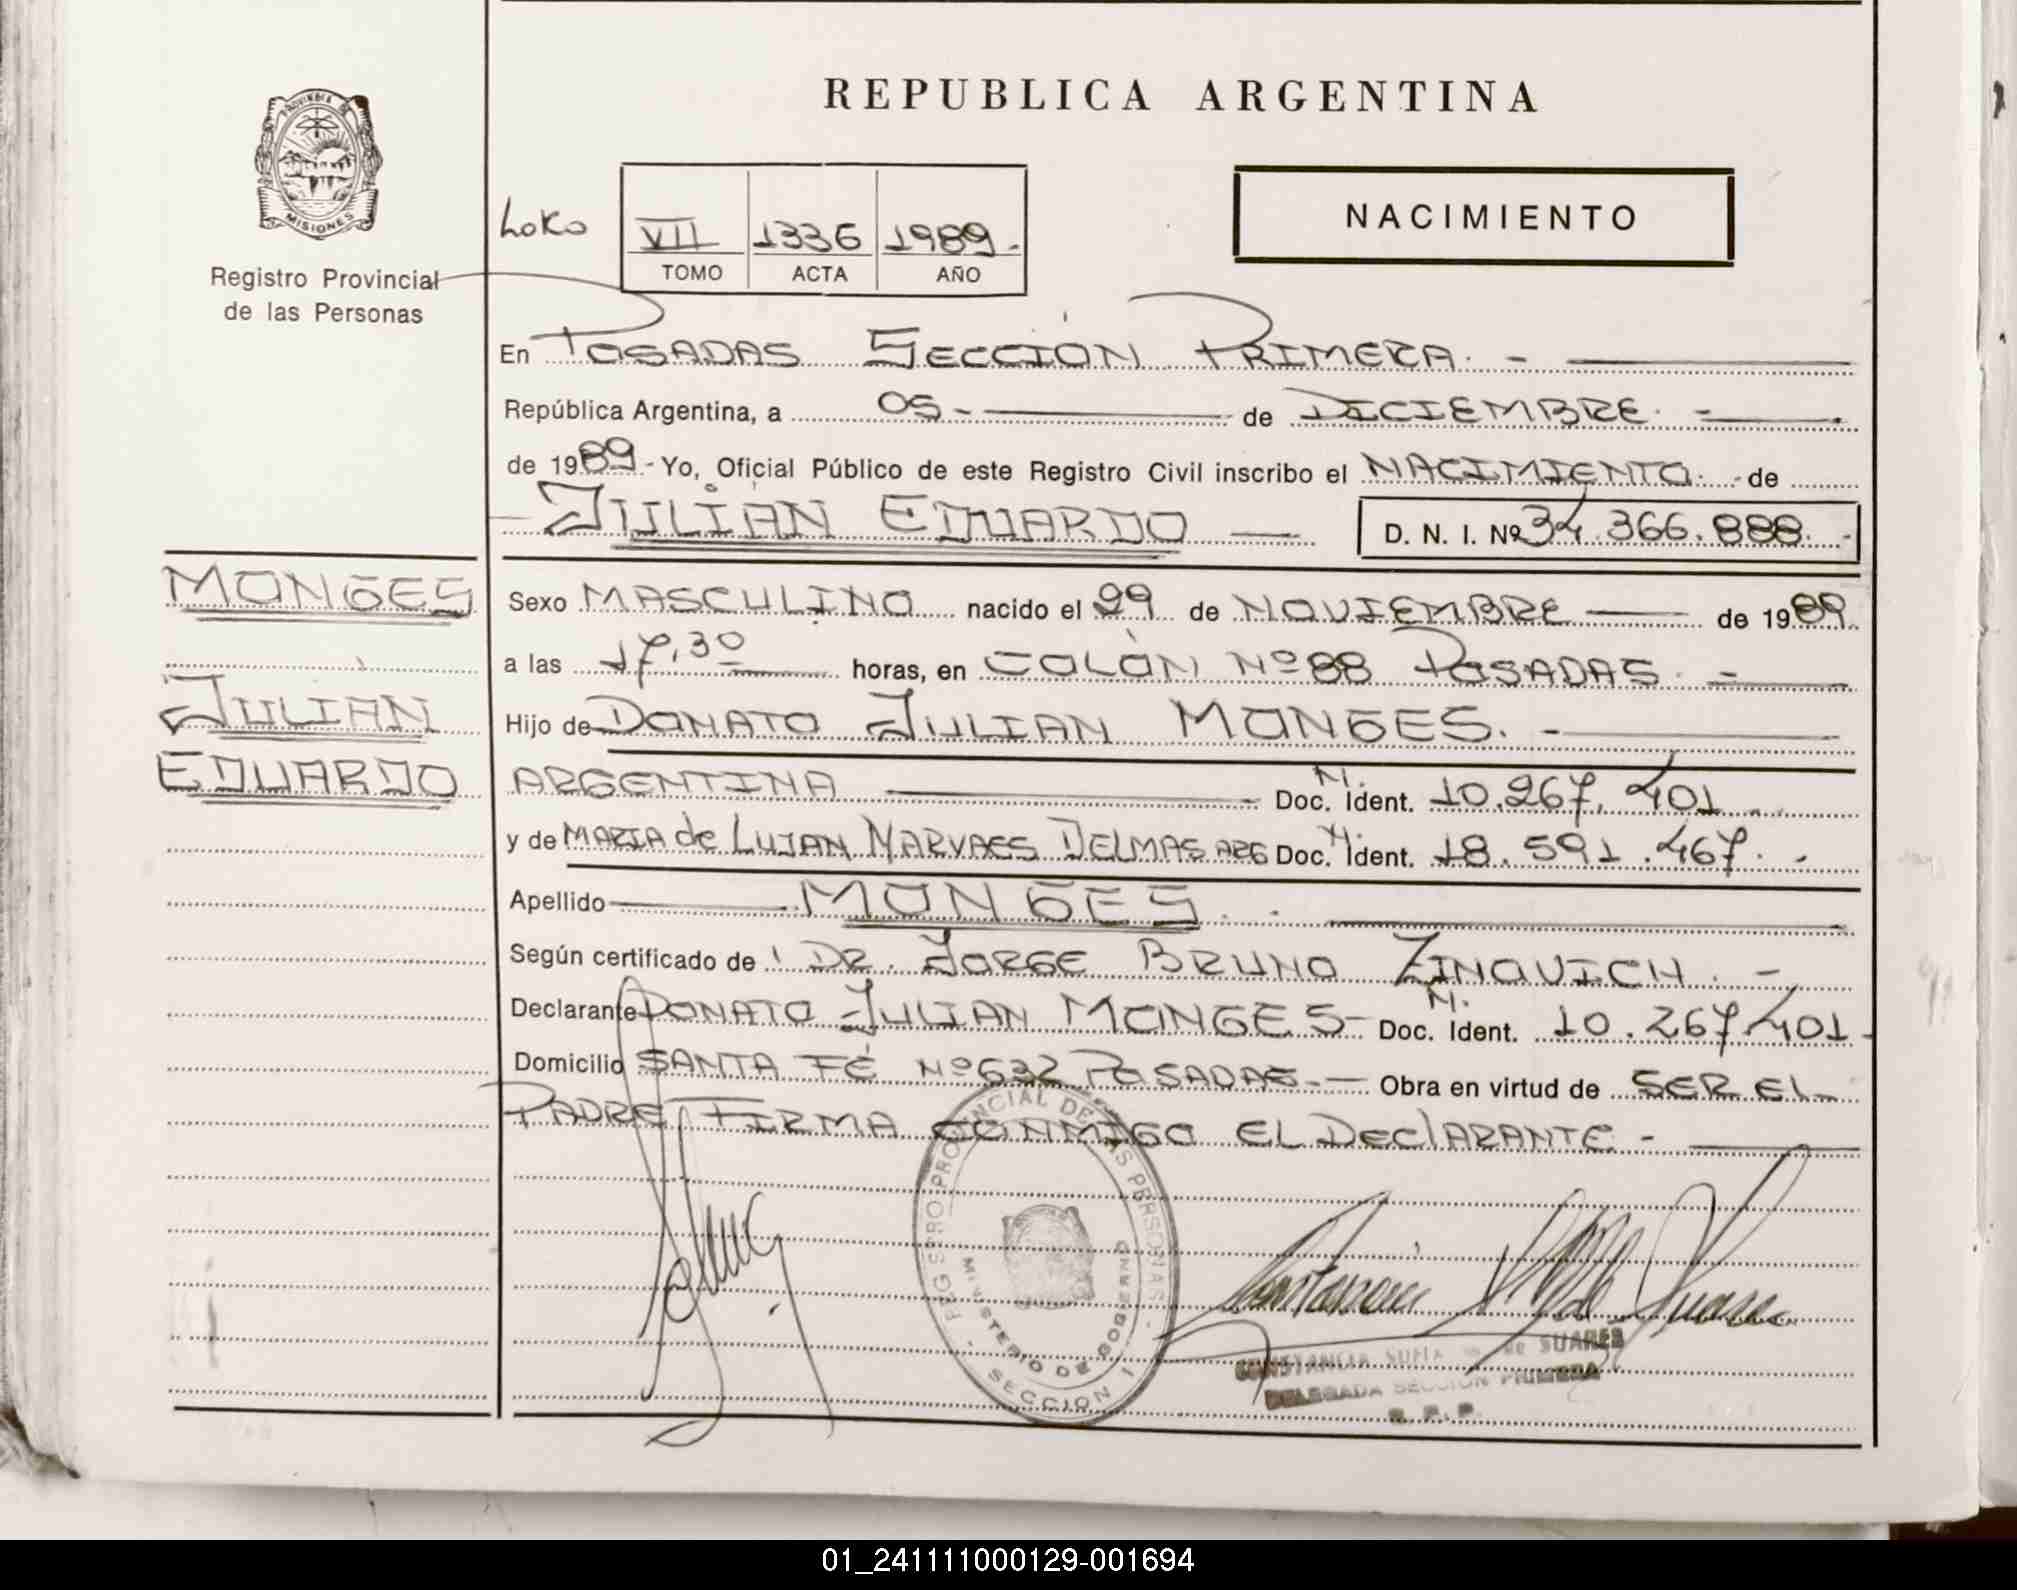 REPUBLICA ARGENTINA
PROVINCIA DE
MISIONES
Registro Provincial
de las Personas
VII 1336 1989.-
TOMO ACTA AÑO
NACIMIENTO
En POSADAS SECCIÓN PRIMERA. -
República Argentina, a 05 - de DICIEMBRE. -
de 1989.- Yo, Oficial Público de este Registro Civil inscribo el NACIMIENTO. - de
- JULIÁN EDUARDO - D. N. I. Nº 34.366.888. -
MONGES
JULIAN
EDUARDO
Sexo MASCULINO nacido el 29 de NOVIEMBRE de 1989
a las 17,30 horas, en COLÓN Nº 88 POSADAS. -
Hijo de DONATO JULIAN MONGES. -
ARGENTINA Doc. M. Ident. 10.267.401 -
y de MARIA de LUJAN NARVAES DELMAS ARG Doc. M. Ident. 18.591.467. -
Apellido MONGES. -
Según certificado de DR. JORGE BRUNO ZINOVICH. -
Declarante DONATO JULIAN MONGES - Doc. M. Ident. 10.267.401 -
Domicilio SANTA FÉ Nº 632 POSADAS. - Obra en virtud de SER EL
PADRE FIRMA CONMIGO EL DEClARANTE -
REGISTRO PROVINCIAL DE LAS PERSONAS
MINISTERIO DE GOBIERNO
SECCION 1
CONSTANCIA de SUAREZ
DELEGADA SECCION PRIMERA
R. P. P.
01_241111000129-001694